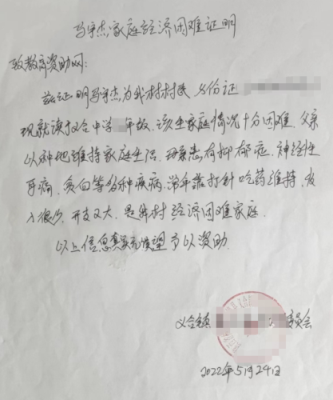 马宇杰家庭经济困难证明
致教育资助网：
兹证明马宇杰为我村村民 身份证
现就读义合中学 年级，该生家庭情况十分困难，父亲
以种地维持家庭生活，母亲患有抑郁症，神经性
牙痛，贫血等多种疾病，常年靠打针吃药维持，收
入很少，开支又大，是我村经济困难家庭。
以上信息真实，希望予以资助
义合镇 委员会
2022年5月29日